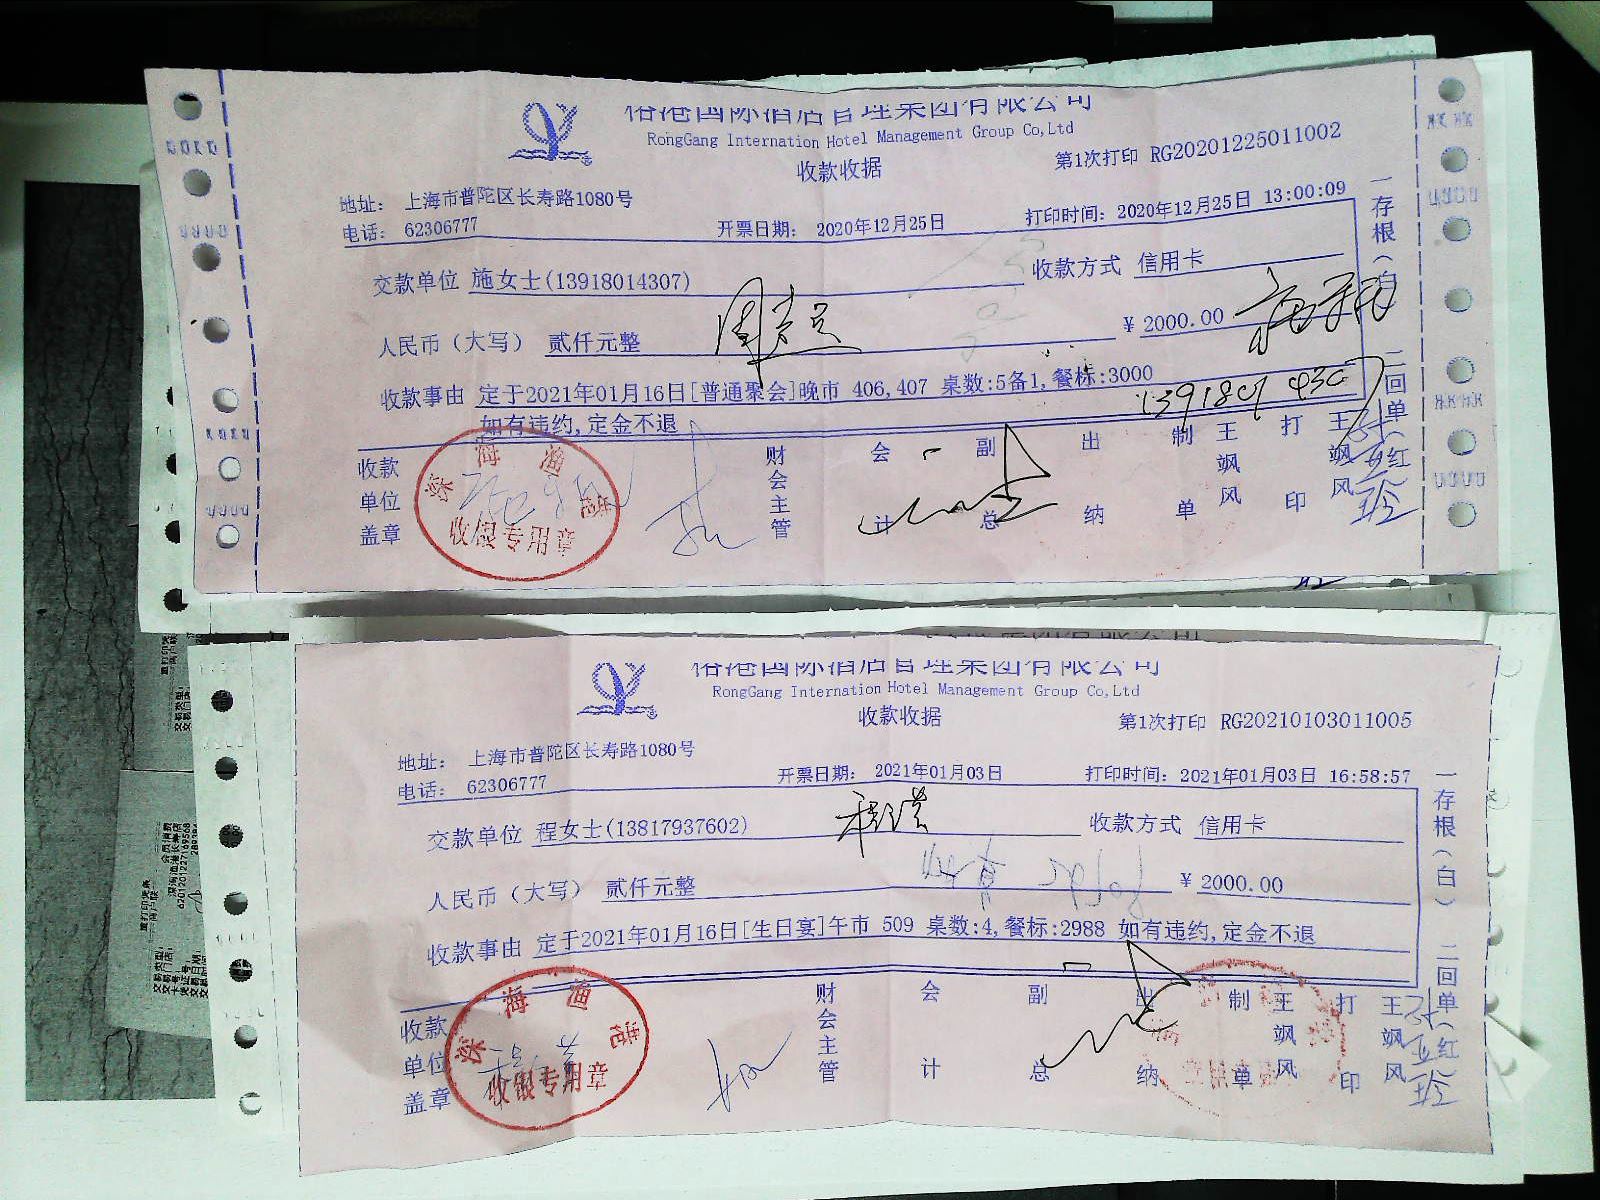 俗港国际酒店管理集团有限公司
RongGang Internation Hotel Management Group Co,Ltd
收款收据
第1次打印 RG20201225011002
地址: 上海市普陀区长寿路1080号
电话: 62306777
开票日期: 2020年12月25日
打印时间: 2020年12月25日 13:00:09
交款单位 施女士(13918014307)
收款方式 信用卡
人民币（大写） 贰仟元整
¥ 2000.00
收款事由 定于2021年01月16日[普通聚会]晚市 406,407 桌数:5备1,餐标:3000
如有违约,定金不退
收款单位盖章
财会主管
会计
副总
出纳
制单
王飒风
打印
王飒风
一存根（白）
二回单（红）
深海渔港
收银专用章
俗港国际酒店管理集团有限公司
RongGang Internation Hotel Management Group Co,Ltd
收款收据
第1次打印 RG20210103011005
地址: 上海市普陀区长寿路1080号
电话: 62306777
开票日期: 2021年01月03日
打印时间: 2021年01月03日 16:58:57
交款单位 程女士(13817937602)
收款方式 信用卡
人民币（大写） 贰仟元整
¥ 2000.00
收款事由 定于2021年01月16日[生日宴]午市 509 桌数:4,餐标:2988 如有违约,定金不退
收款单位盖章
财会主管
会计
副总
出纳
制单
王飒风
打印
王飒风
一存根（白）
二回单（红）
深海渔港
收银专用章